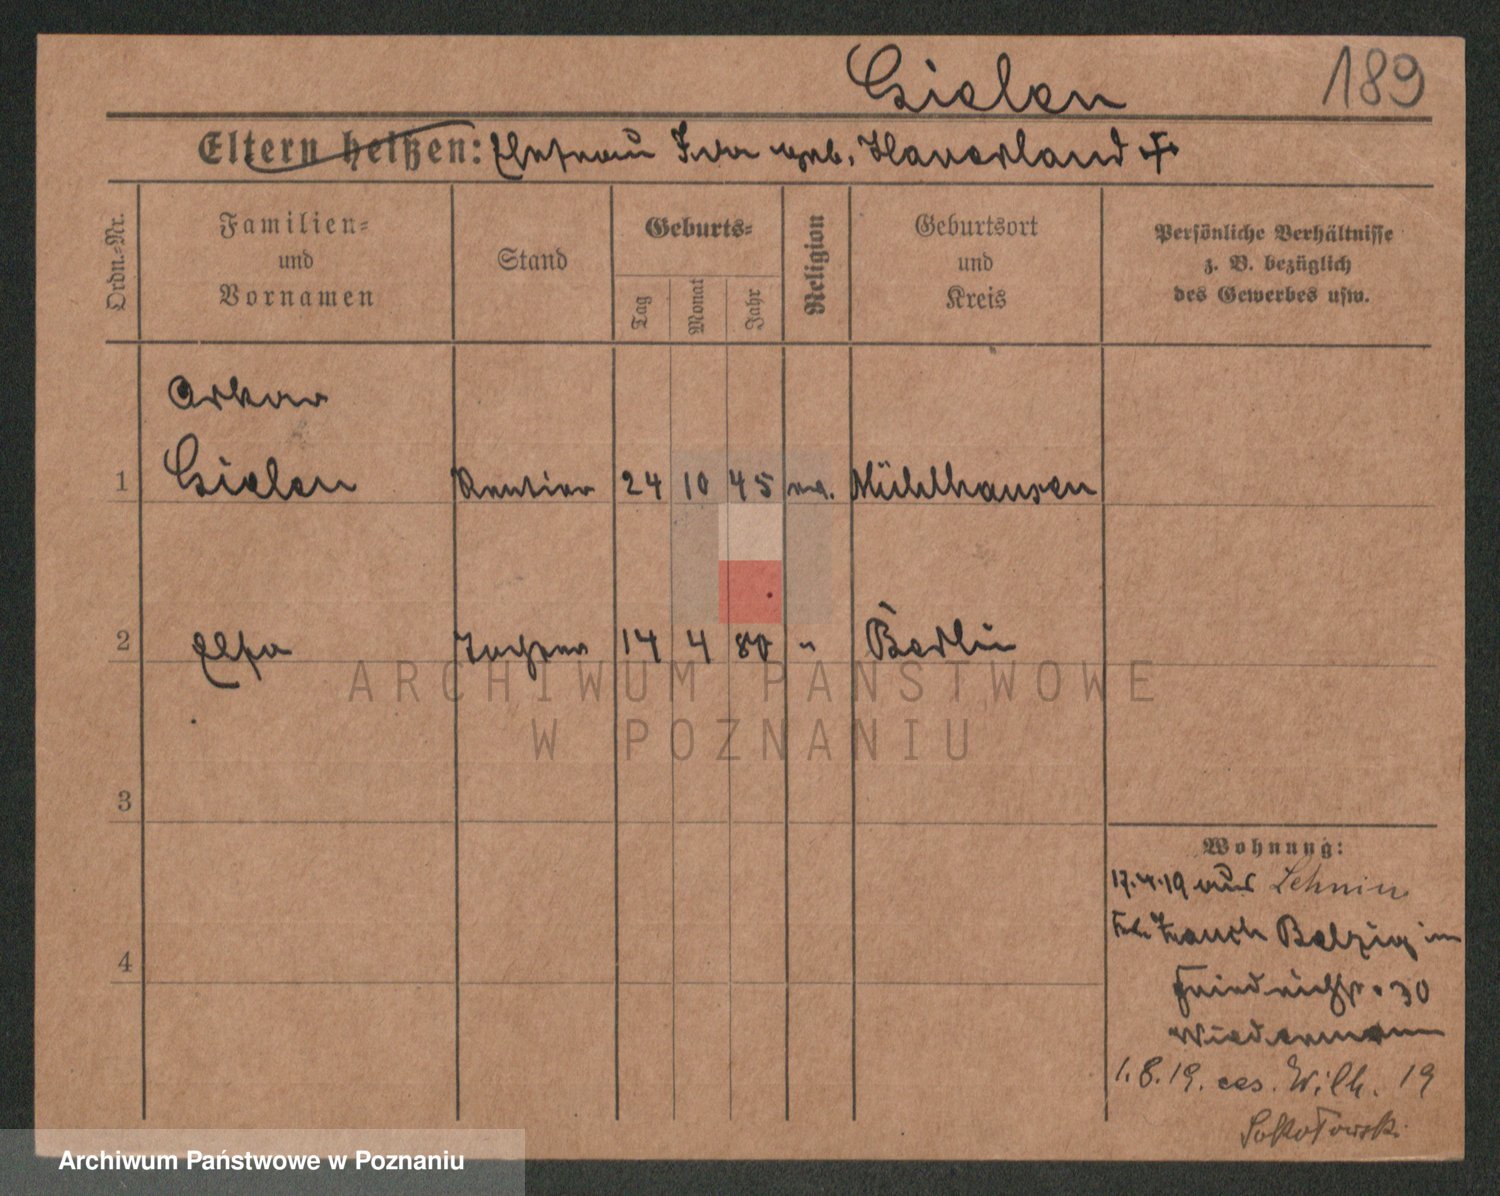 Gielen 189
Eltern heißen: Ehefrau geb. Haverland †
Ordn.-Nr.
Familien-
und
Vornamen
Stand
Geburts-
Tag
Monat
Jahr
Religion
Geburtsort
und
Kreis
Persönliche Verhältnisse
z. B. bezüglich
des Gewerbes usw.
Oskar
1 Gielen Rentier 24 10 45 ev. Mühlhausen
2 Elsa Tochter 14 4 80 " Berlin
3
4
Wohnung:
17.4.19 aus Lehnin
Belzig
Friedrichstr. 30
Wiedermann
1.8.19. Wilh. 19
Sokołowski
ARCHIWUM PAŃSTWOWE
W POZNANIU
Archiwum Państwowe w Poznaniu